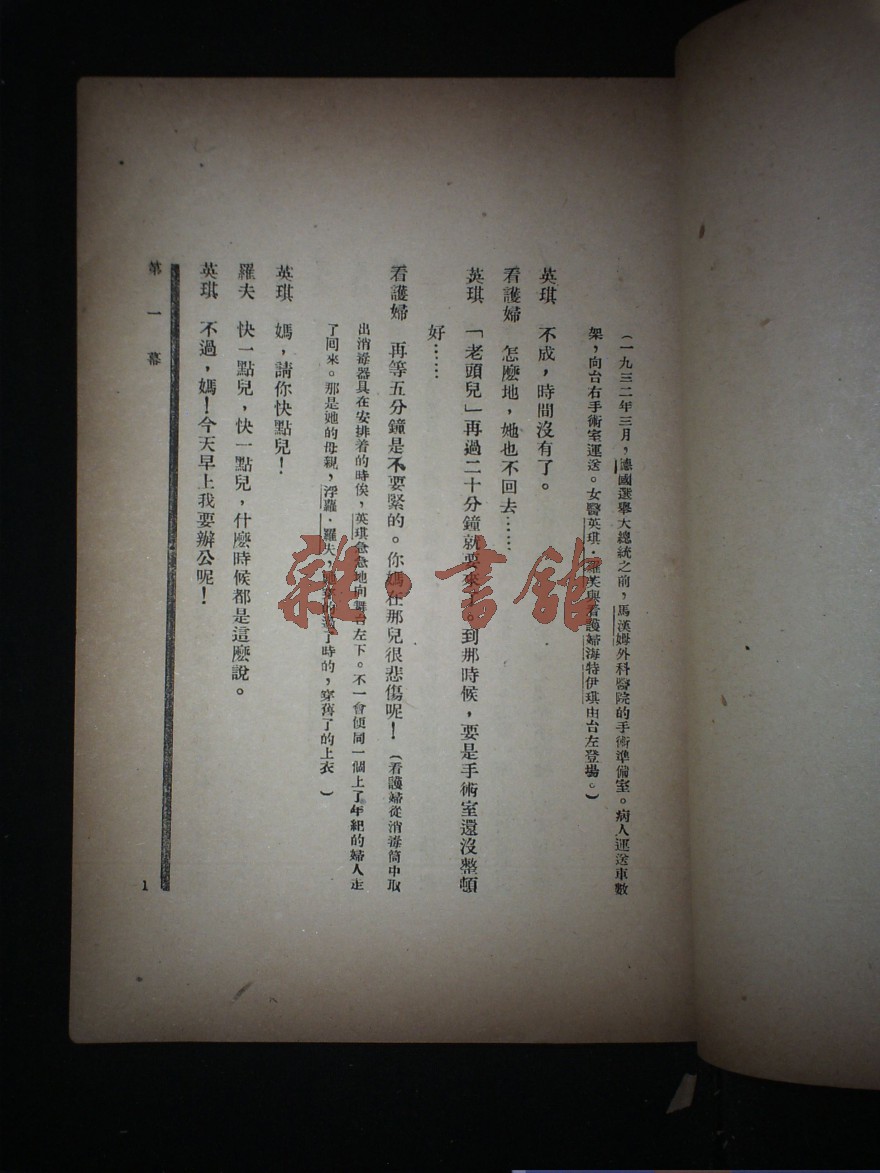 (一九三二年三月，德國選舉大總統之前，馬漢姆外科醫院的手術準備室。病人運送車數
架，向台右手術室運送。女醫英琪·羅芙與看護婦海特伊琪由台左登場。)
英琪　不成，時間沒有了。
看護婦　怎麼地，她也不回去……
英琪　「老頭兒」再過二十分鐘就要來了。到那時候，要是手術室還沒整頓
好……
看護婦　再等五分鐘是不要緊的。你媽在那兒很悲傷呢！(看護婦從消毒筒中取
出消毒器具在安排着的時候，英琪急急地向舞台左下。不一會便同一個上了年紀的婦人走
了回來。那是她的母親，浮羅·羅夫，了時的，穿舊了的上衣)
英琪　媽，請你快點兒！
羅夫　快一點兒，快一點兒，什麼時候都是這麼說。
英琪　不過，媽！今天早上我要辦公呢！
第一幕
1
雜·書館